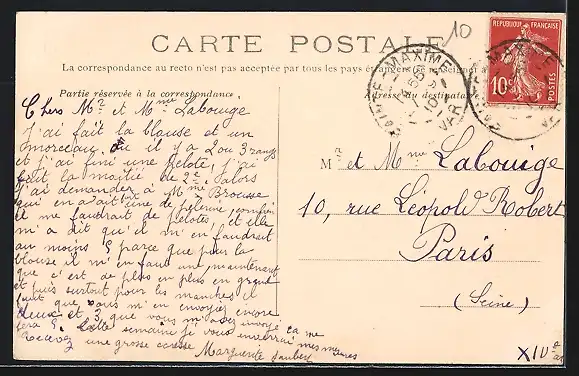 10
CARTE POSTALE
REPUBLIQUE FRANÇAISE
10c
POSTES
La correspondance au recto n'est pas acceptée par tous les pays étrangers (se renseigner
Partie réservée à la correspondance
Adresse du destinataire
MAXIME
VAR
Chers Mr et Mme Labouige
j'ai fait la blouse et un
morceau où il y a 2 ou 3 rangs
et j'ai fini une pelote, j'ai
fait la moitié de 2e. Alors
j'ai demander à Mme Brousse
qui en avait une de pelerine, combien
il me faudrait de pelotes et elle
m'a dit qu'il m'en faudrait
au moins 5 parce que pour la
blouse il m'en faut une, maintenant
que c'est de plus en plus en grand
et puis surtout pour les manches il
faut que vous m'en envoyiez encore
deux et 3 que vous m'avez envoyé ça me
fera 5. Cette semaine je vous enverrai mes mesures
Recevez une grosse caresse
Marguerite Jaubert
Mr et Mme Labouige
10, rue Léopold Robert
Paris
(Seine)
XIV